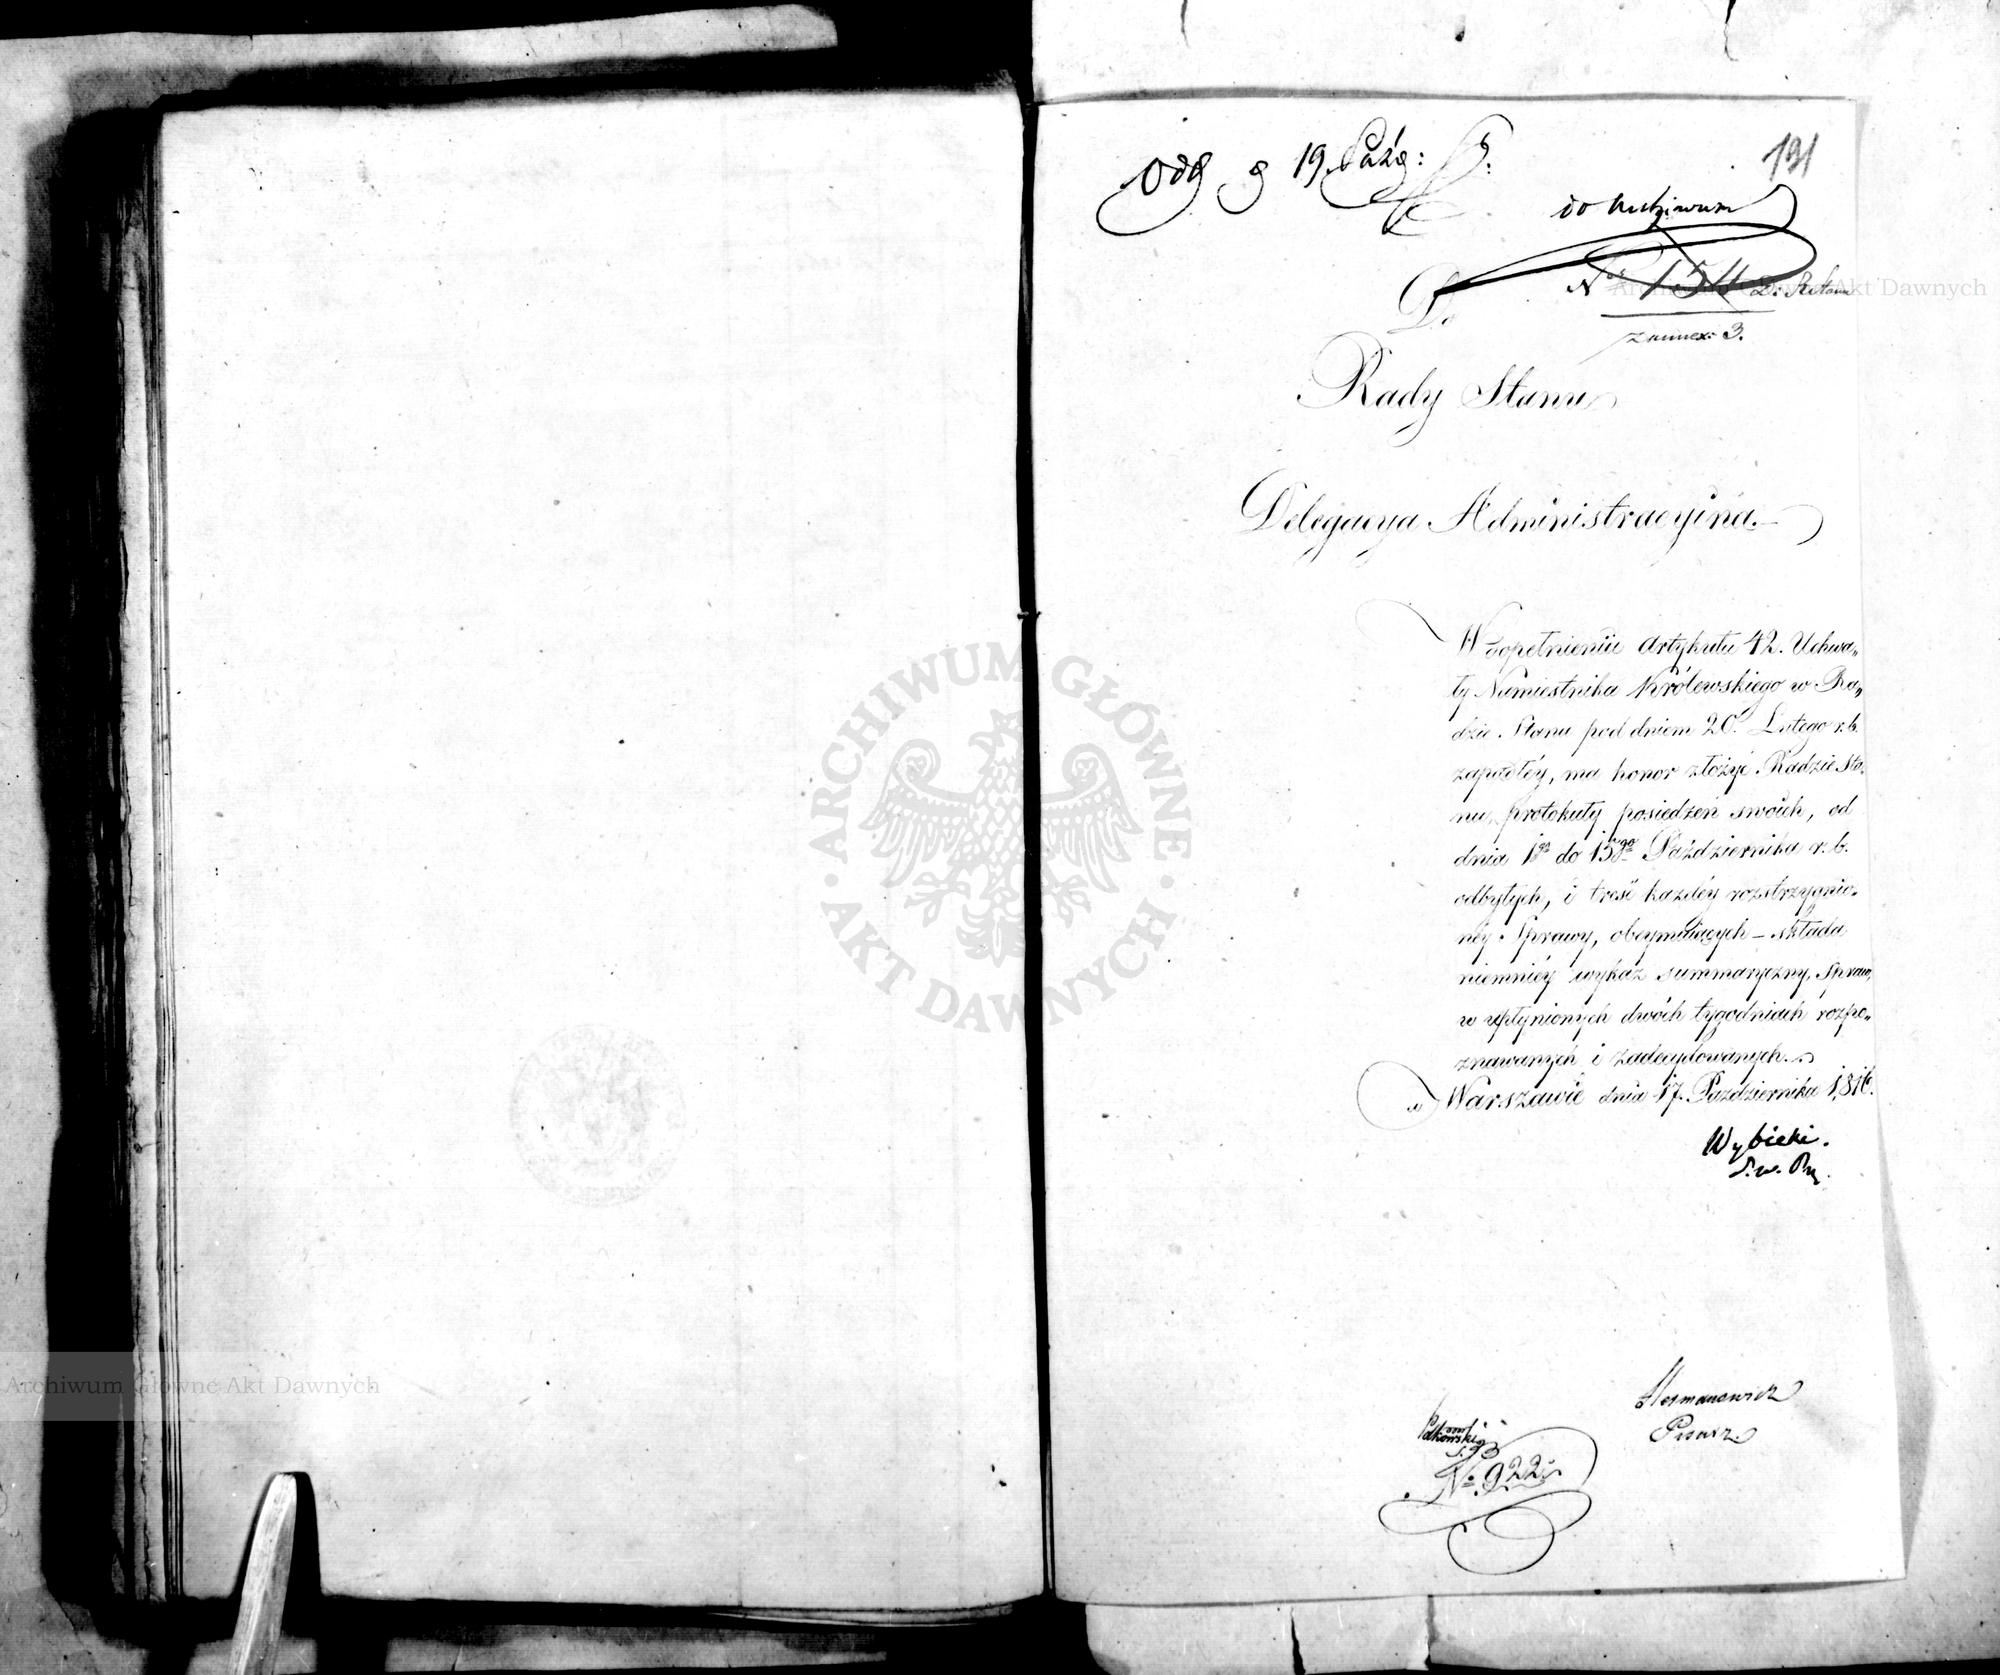 Odd d 19 Paźd:
131
do Archiwum
No 1511 D: R. Stanu
z annex: 3.
Do
Rady Stanu
Delegacya Administracyina.
W dopełnieniu Artykułu 42. Uchwa„
ły Namiestnika Królewskiego w Ra„
dzie Stanu pod dniem 20. Lutego r. b.
zapadłéy, ma honor złożyć Radzie Sta„
nu, protokuły posiedzeń swoich, od
dnia 1go do 15go Października r. b.
odbytych, i treść każdéy rozstrzygnio„
néy Sprawy, obeymuiących – składa
niemniéy wykaz summaryczny, Spraw,
w upłynionych dwóch tygodniach rozpo„
znawanych i zadecydowanych.
w Warszawie dnia 17. Października 1816.
Wybicki.
S. w. Pr.
Hermanowicz
Pisarz.
No 922
ARCHIWUM GŁÓWNE
AKT DAWNYCH
Archiwum Główne Akt Dawnych
Archiwum Główne Akt Dawnych